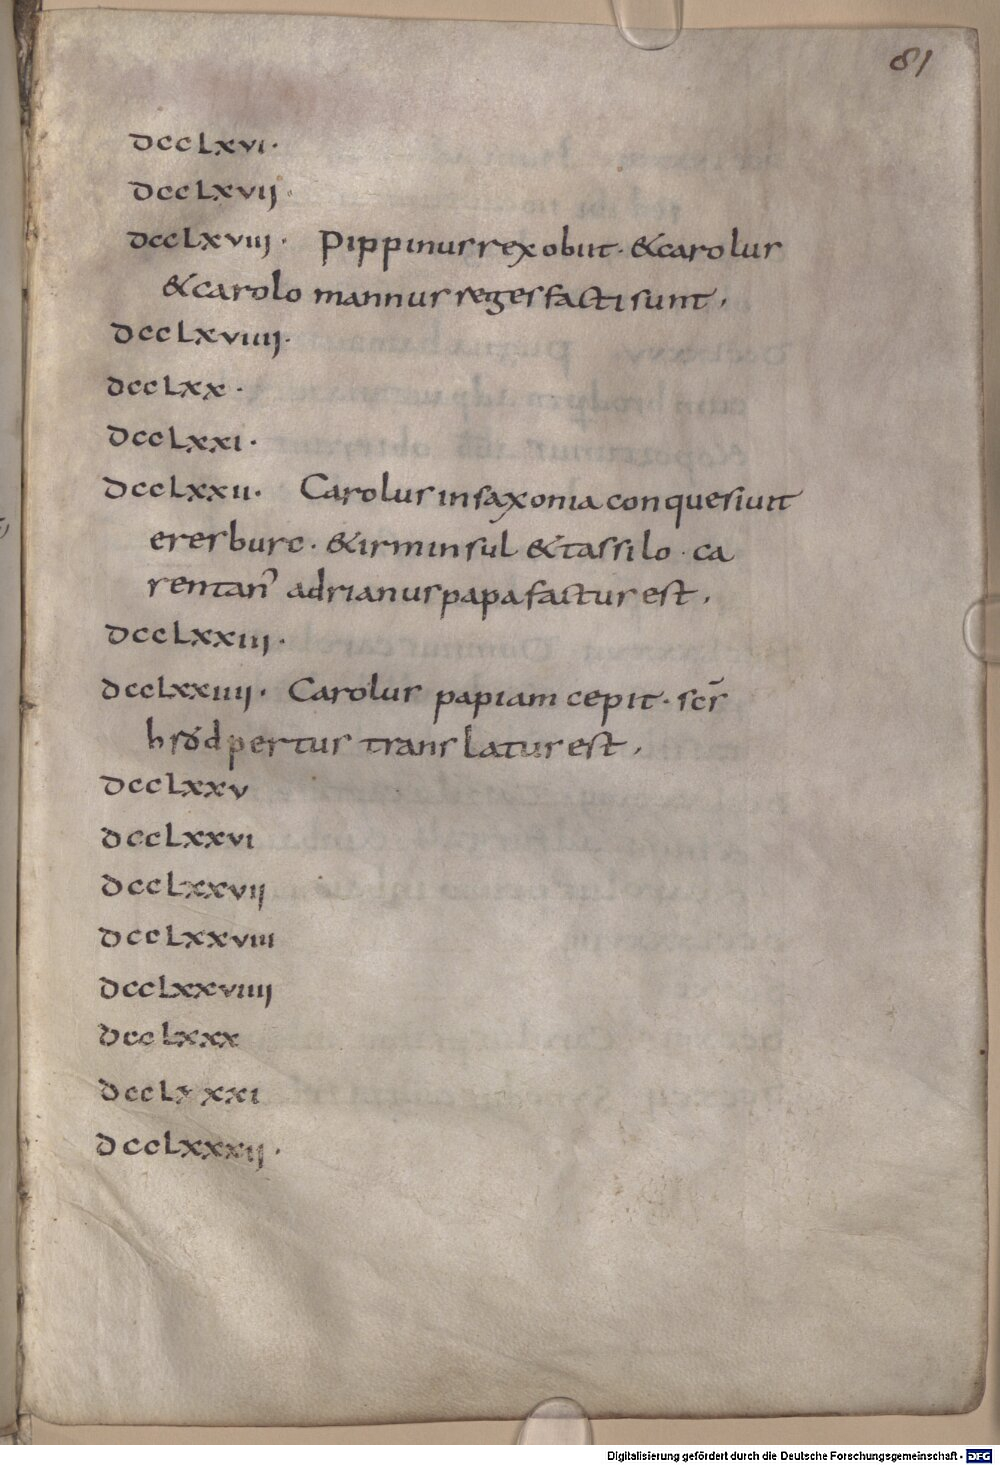 81
dccLxvi·
dccLxvii·
dccLxviii· Pippinus rex obiit· & carolus
& carolo mannus reges facti sunt,
dccLxviiii·
dccLxx·
dccLxxi·
dccLxxii· Carolus in saxonia conquesiuit
eresburc· & irminsul & tassilo· ca
rentan̄ adrianus papa factus est,
dccLxxiii·
dccLxxiiii· Carolus papiam cepit· scs̄
hródpertus translatus est,
dccLxxv
dccLxxvi
dccLxxvii
dccLxxviii
dccLxxviiii
dccLxxx
dccLxxxi
dccLxxxii·
Digitalisierung gefördert durch die Deutsche Forschungsgemeinschaft - DFG